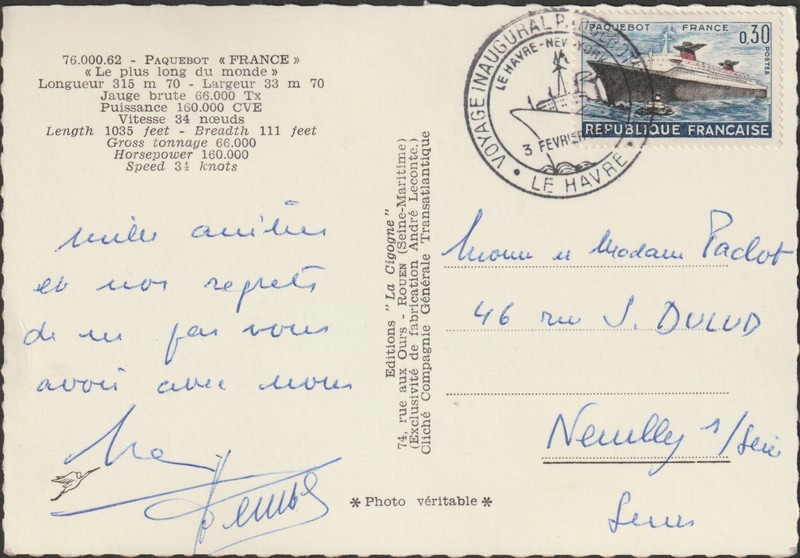 76.000.62 - PAQUEBOT « FRANCE »
« Le plus long du monde »
Longueur 315 m 70 - Largeur 33 m 70
Jauge brute 66.000 Tx
Puissance 160.000 CVE
Vitesse 34 nœuds
Length 1035 feet - Breadth 111 feet
Gross tonnage 66.000
Horsepower 160.000
Speed 34 knots
mille amitiés
et nos regrets
de ne pas vous
avoir avec nous
Editions "La Cigogne"
74, rue aux Ours - ROUEN (Seine-Maritime)
(Exclusivité de fabrication André Leconte.)
Cliché Compagnie Générale Transatlantique
* Photo véritable *
VOYAGE INAUGURAL PAQUEBOT
LE HAVRE-NEW-YORK
3 FEVRIER
LE HAVRE
PAQUEBOT FRANCE
0,30
POSTES
REPUBLIQUE FRANÇAISE
et Madame
46 rue J. DULUD
Neuilly s/Seine
Seine